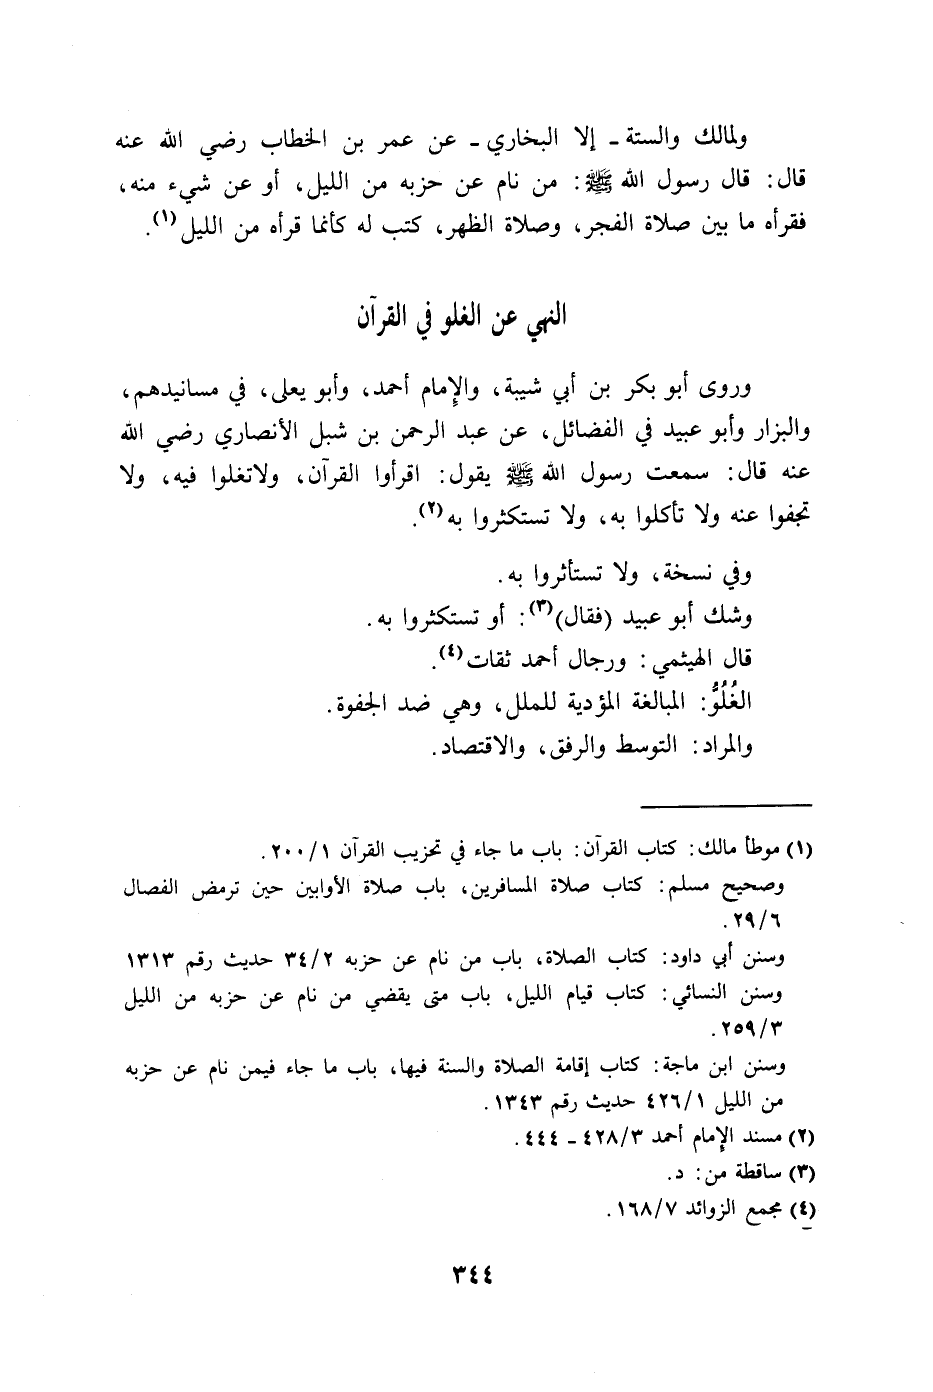 ولمالك والستة ـ إلا البخاري ـ عن عمر بن الخطاب رضي الله عنه
قال: قال رسول الله ﷺ: من نام عن حزبه من الليل، أو عن شيء منه،
فقرأه ما بين صلاة الفجر، وصلاة الظهر، كتب له كأنما قرأه من الليل(١).
النهي عن الغلو في القرآن
وروى أبو بكر بن أبي شيبة، والإمام أحمد، وأبو يعلى، في مسانيدهم،
والبزار وأبو عبيد في الفضائل، عن عبد الرحمن بن شبل الأنصاري رضي الله
عنه قال: سمعت رسول الله ﷺ يقول: اقرأوا القرآن، ولاتغلوا فيه، ولا
تجفوا عنه ولا تأكلوا به، ولا تستكثروا به(٢).
وفي نسخة، ولا تستأثروا به.
وشك أبو عبيد (فقال)(٣): أو تستكثروا به.
قال الهيثمي: ورجال أحمد ثقات(٤).
الغُلُوُّ: المبالغة المؤدية للملل، وهي ضد الجفوة.
والمراد: التوسط والرفق، والاقتصاد.
(١) موطأ مالك: كتاب القرآن: باب ما جاء في تحزيب القرآن ٢٠٠/١.
وصحيح مسلم: كتاب صلاة المسافرين، باب صلاة الأوابين حين ترمض الفصال
٢٩/٦.
وسنن أبي داود: كتاب الصلاة، باب من نام عن حزبه ٣٤/٢ حديث رقم ١٣١٣
وسنن النسائي: كتاب قيام الليل، باب متى يقضي من نام عن حزبه من الليل
٢٥٩/٣.
وسنن ابن ماجة: كتاب إقامة الصلاة والسنة فيها، باب ما جاء فيمن نام عن حزبه
من الليل ٤٢٦/١ حديث رقم ١٣٤٣.
(٢) مسند الإمام أحمد ٤٢٨/٣ ـ ٤٤٤.
(٣) ساقطة من: د.
(٤) مجمع الزوائد ١٦٨/٧.
٣٤٤